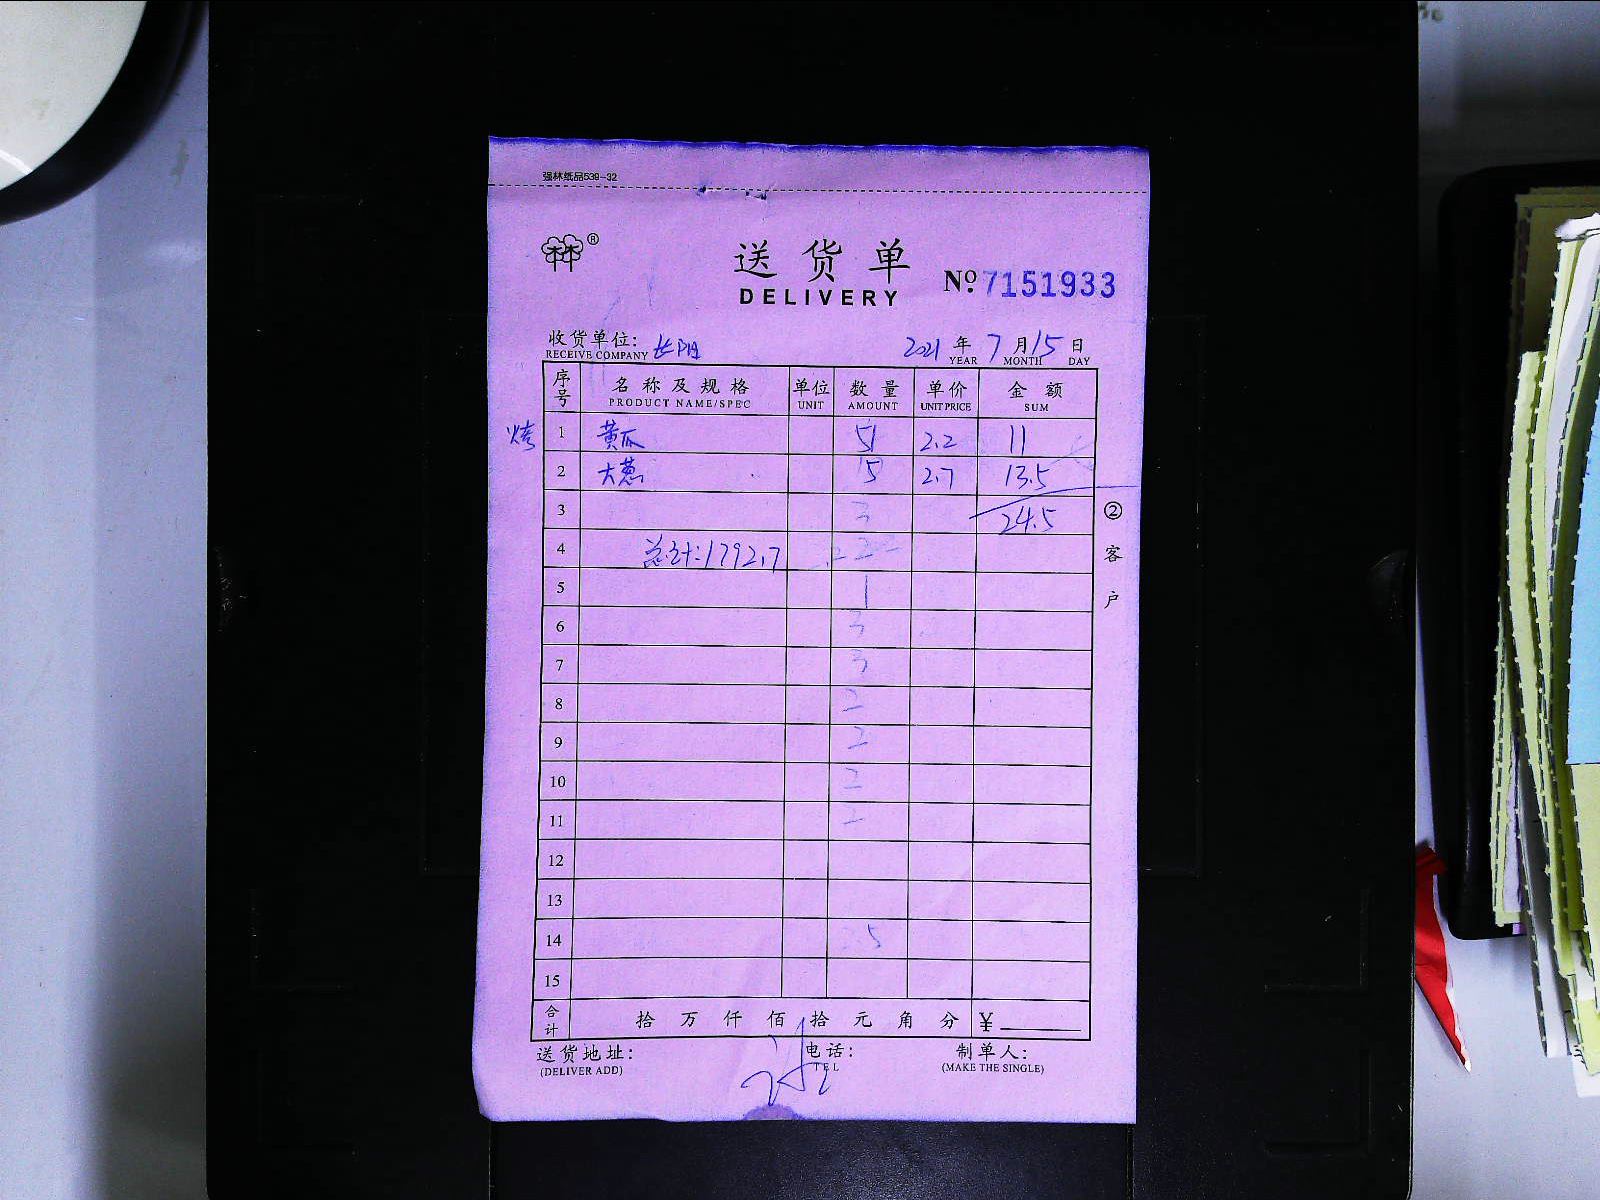 强林纸品539-32
林林®
送货单
DELIVERY
№ 7151933
收货单位: 长阳
RECEIVE COMPANY
2021 年 7 月 15 日
YEAR MONTH DAY
序号 名称及规格 单位 数量 单价 金额
PRODUCT NAME/SPEC UNIT AMOUNT UNIT PRICE SUM
烤 1 黄瓜 5 2.2 11
2 大葱 5 2.7 13.5
3 3 24.5
4 总计:1792.7
5 1
6 3
7 3
8 2
9 2
10 2
11
12
13
14 5
15
②客户
合计 拾万仟佰拾元角分 ¥
送货地址: 电话: 制单人:
(DELIVER ADD) TEL (MAKE THE SINGLE)